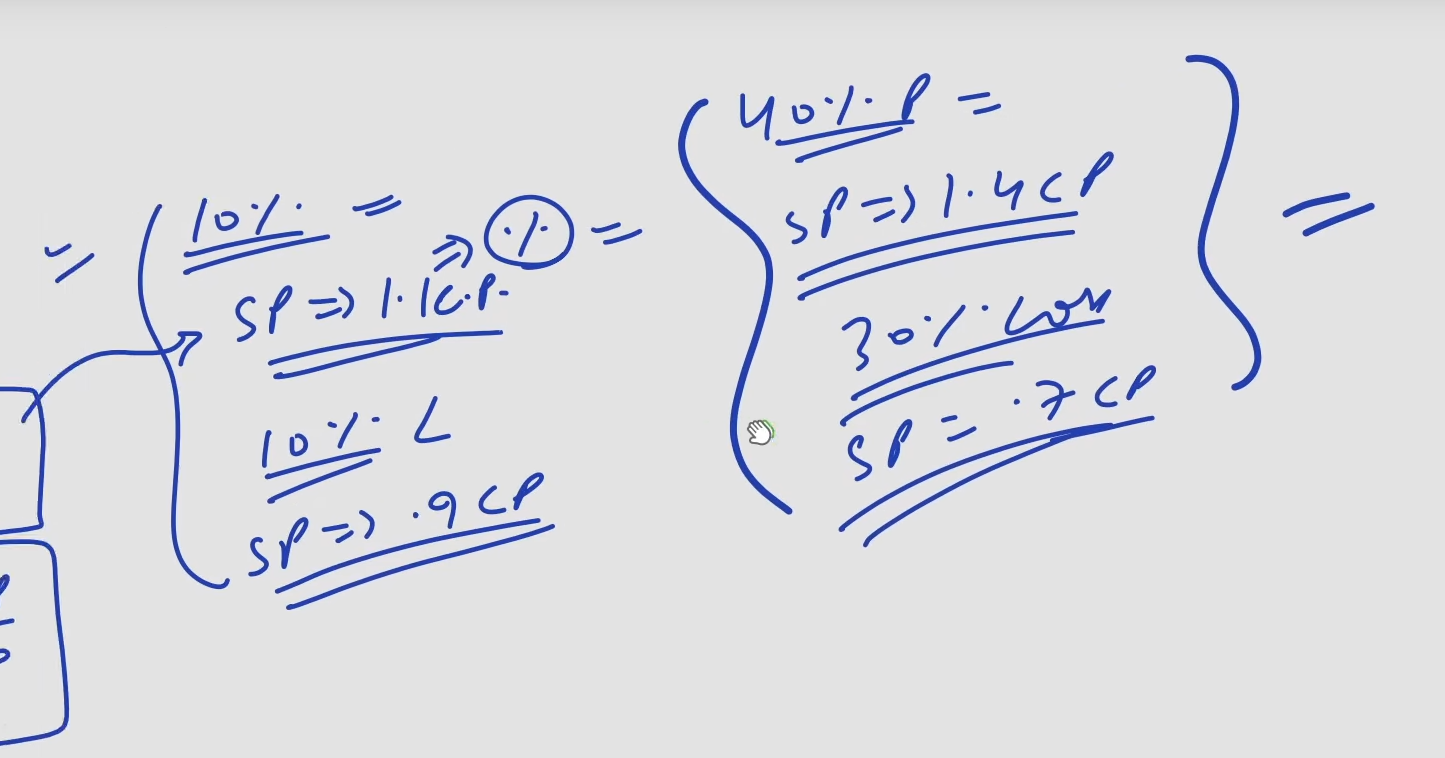 10% =
SP => 1.1C.P.
=> % =
10% L
SP => .9 CP
40% P =
SP => 1.4 CP
30% Loss
SP = .7 CP
=